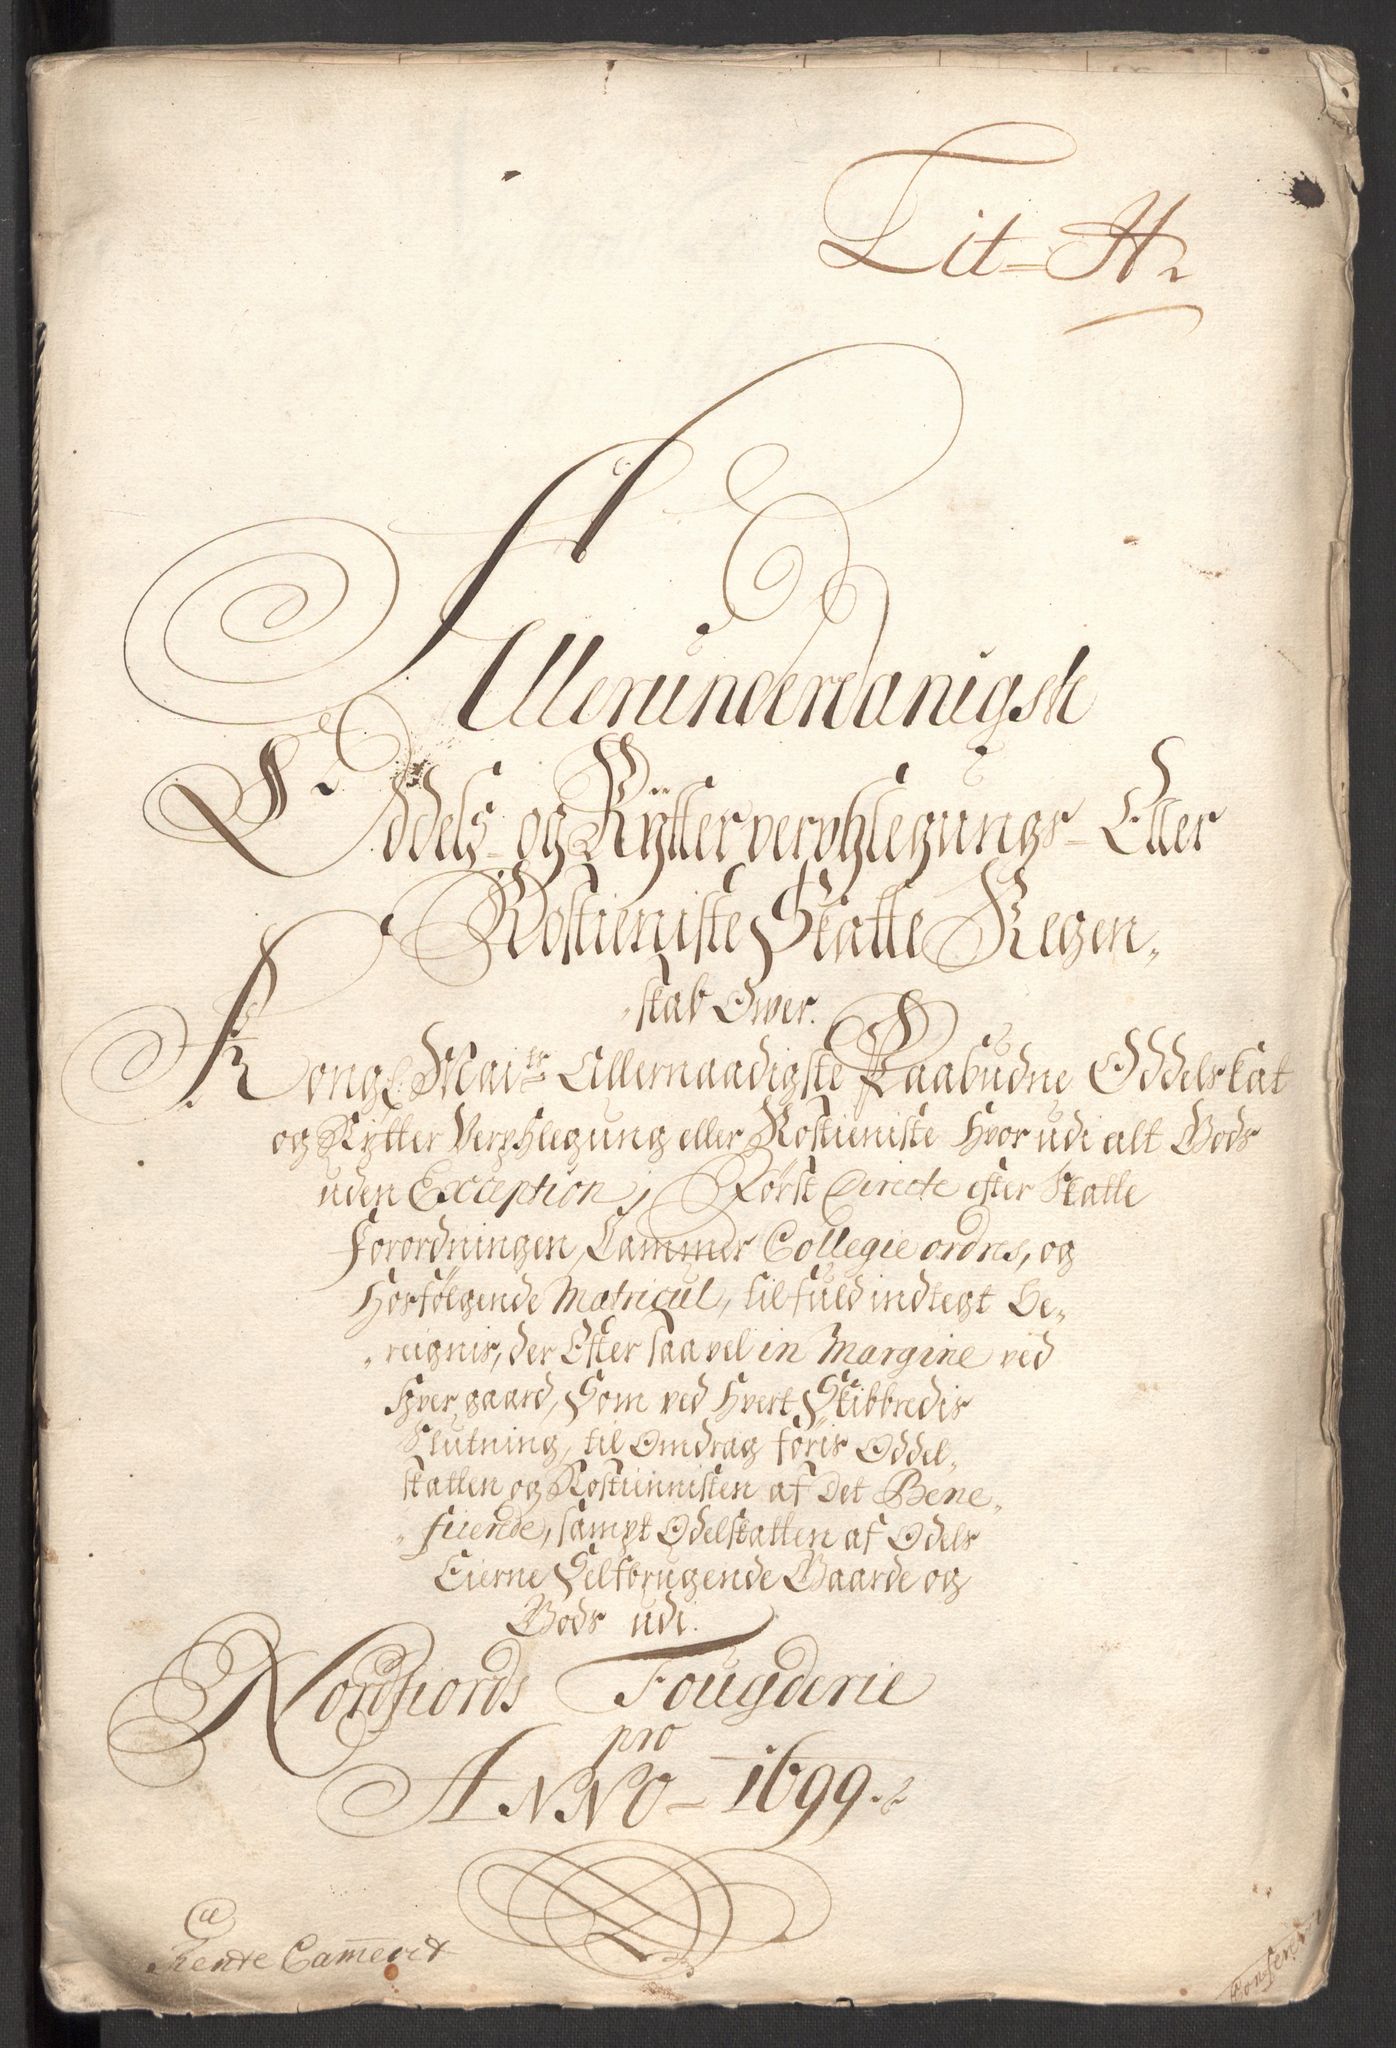 Lit=H
Allerunderdanigste
Oddels= og Rÿtterverphlegungs= Eller
Rostieniste Skatte Regen,
,skab Over.
Kongl: Mai:ts Allernaadigste Paabudne Oddelskat
og Rÿtter Verphlegung eller Rostieniste Hvor udi alt Gods
uden Exception, Først Directe efter Skatte
forordningen, Cammer Collegie ordres, og
Hosfølgende Matricul, til fuld indtegt be,
,reignis, der Efter saavel in Margine ved
Hver gaard, Som ved Hvert Skibbredis
Slutning, til Omdrag føris Oddel,
skatten og Rostiennisten af det Bene,
,ficerede, sampt Odelskatten af Odels
Eierne Selfbrugende Gaarde og
Gods udi.
Nordfiords Fougderie
pro
ANNO - 1699.
Rente Cammerit